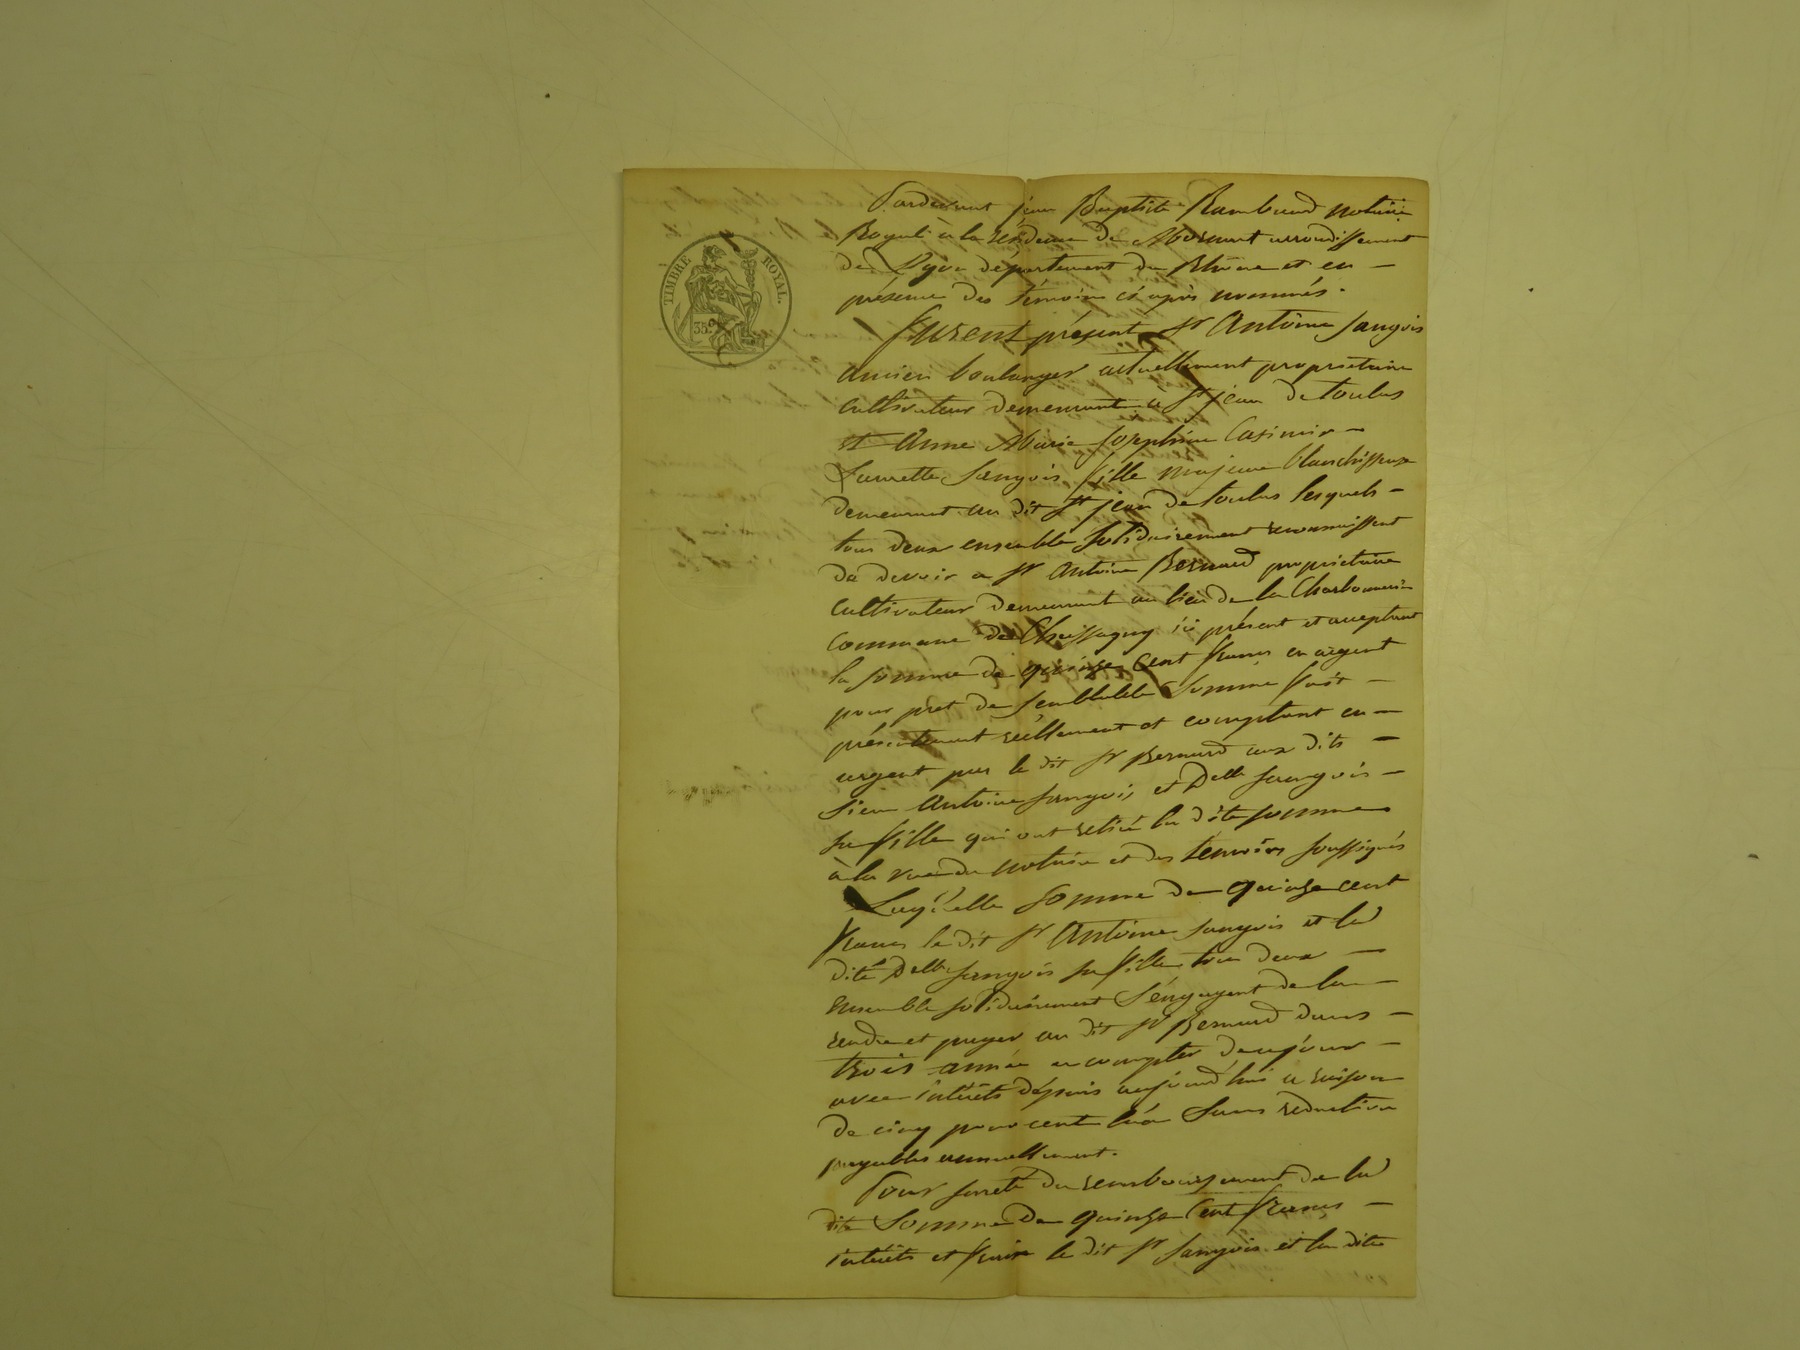 TIMBRE ROYAL.
35c
Pardevant jean Baptiste Rambaud notaire
Royal à la résidence de Mornant arrondissement
de Lyon département du Rhône et en
présence des témoins ci après nommés.
Furent présent Sr Antoine sangois
ancien boulanger actuellement propriétaire
cultivateur demeurant à St jean de toulas
et Anne Marie joséphine Casimir
sangois fille majeure blanchisseuse
demeurant au dit St jean de toulas lesquels
tous deux ensemble solidairement reconnaissent
de devoir a Sr Antoine Bernard propriétaire
cultivateur demeurant au lieu de la Charbonnerie
commune de Chassagny ici présent et acceptant
la somme de quinze cent francs en argent
pour pret de semblable somme fait
présentement réellement et comptant en
argent par le dit Sr Bernard aux dits
sieur Antoine sangois et Delle sangois
sa fille qui ont retiré la dite somme
à la vue du notaire et des témoins soussignés
Laquelle somme de quinze cent
francs le dit Sr Antoine sangois et la
dite Delle sangois sa fille tous deux
ensemble solidairement s'engagent de la
rendre et payer au dit Sr Bernard dans
trois année a compter de ce jour
avec intérêts depuis aujourd'hui a raison
de cinq pour cent l'an sans réduction
payables annuellement.
Pour sureté du remboursement de la
dite somme de quinze cent francs
intérêts et frais le dit Sr sangois et la dite